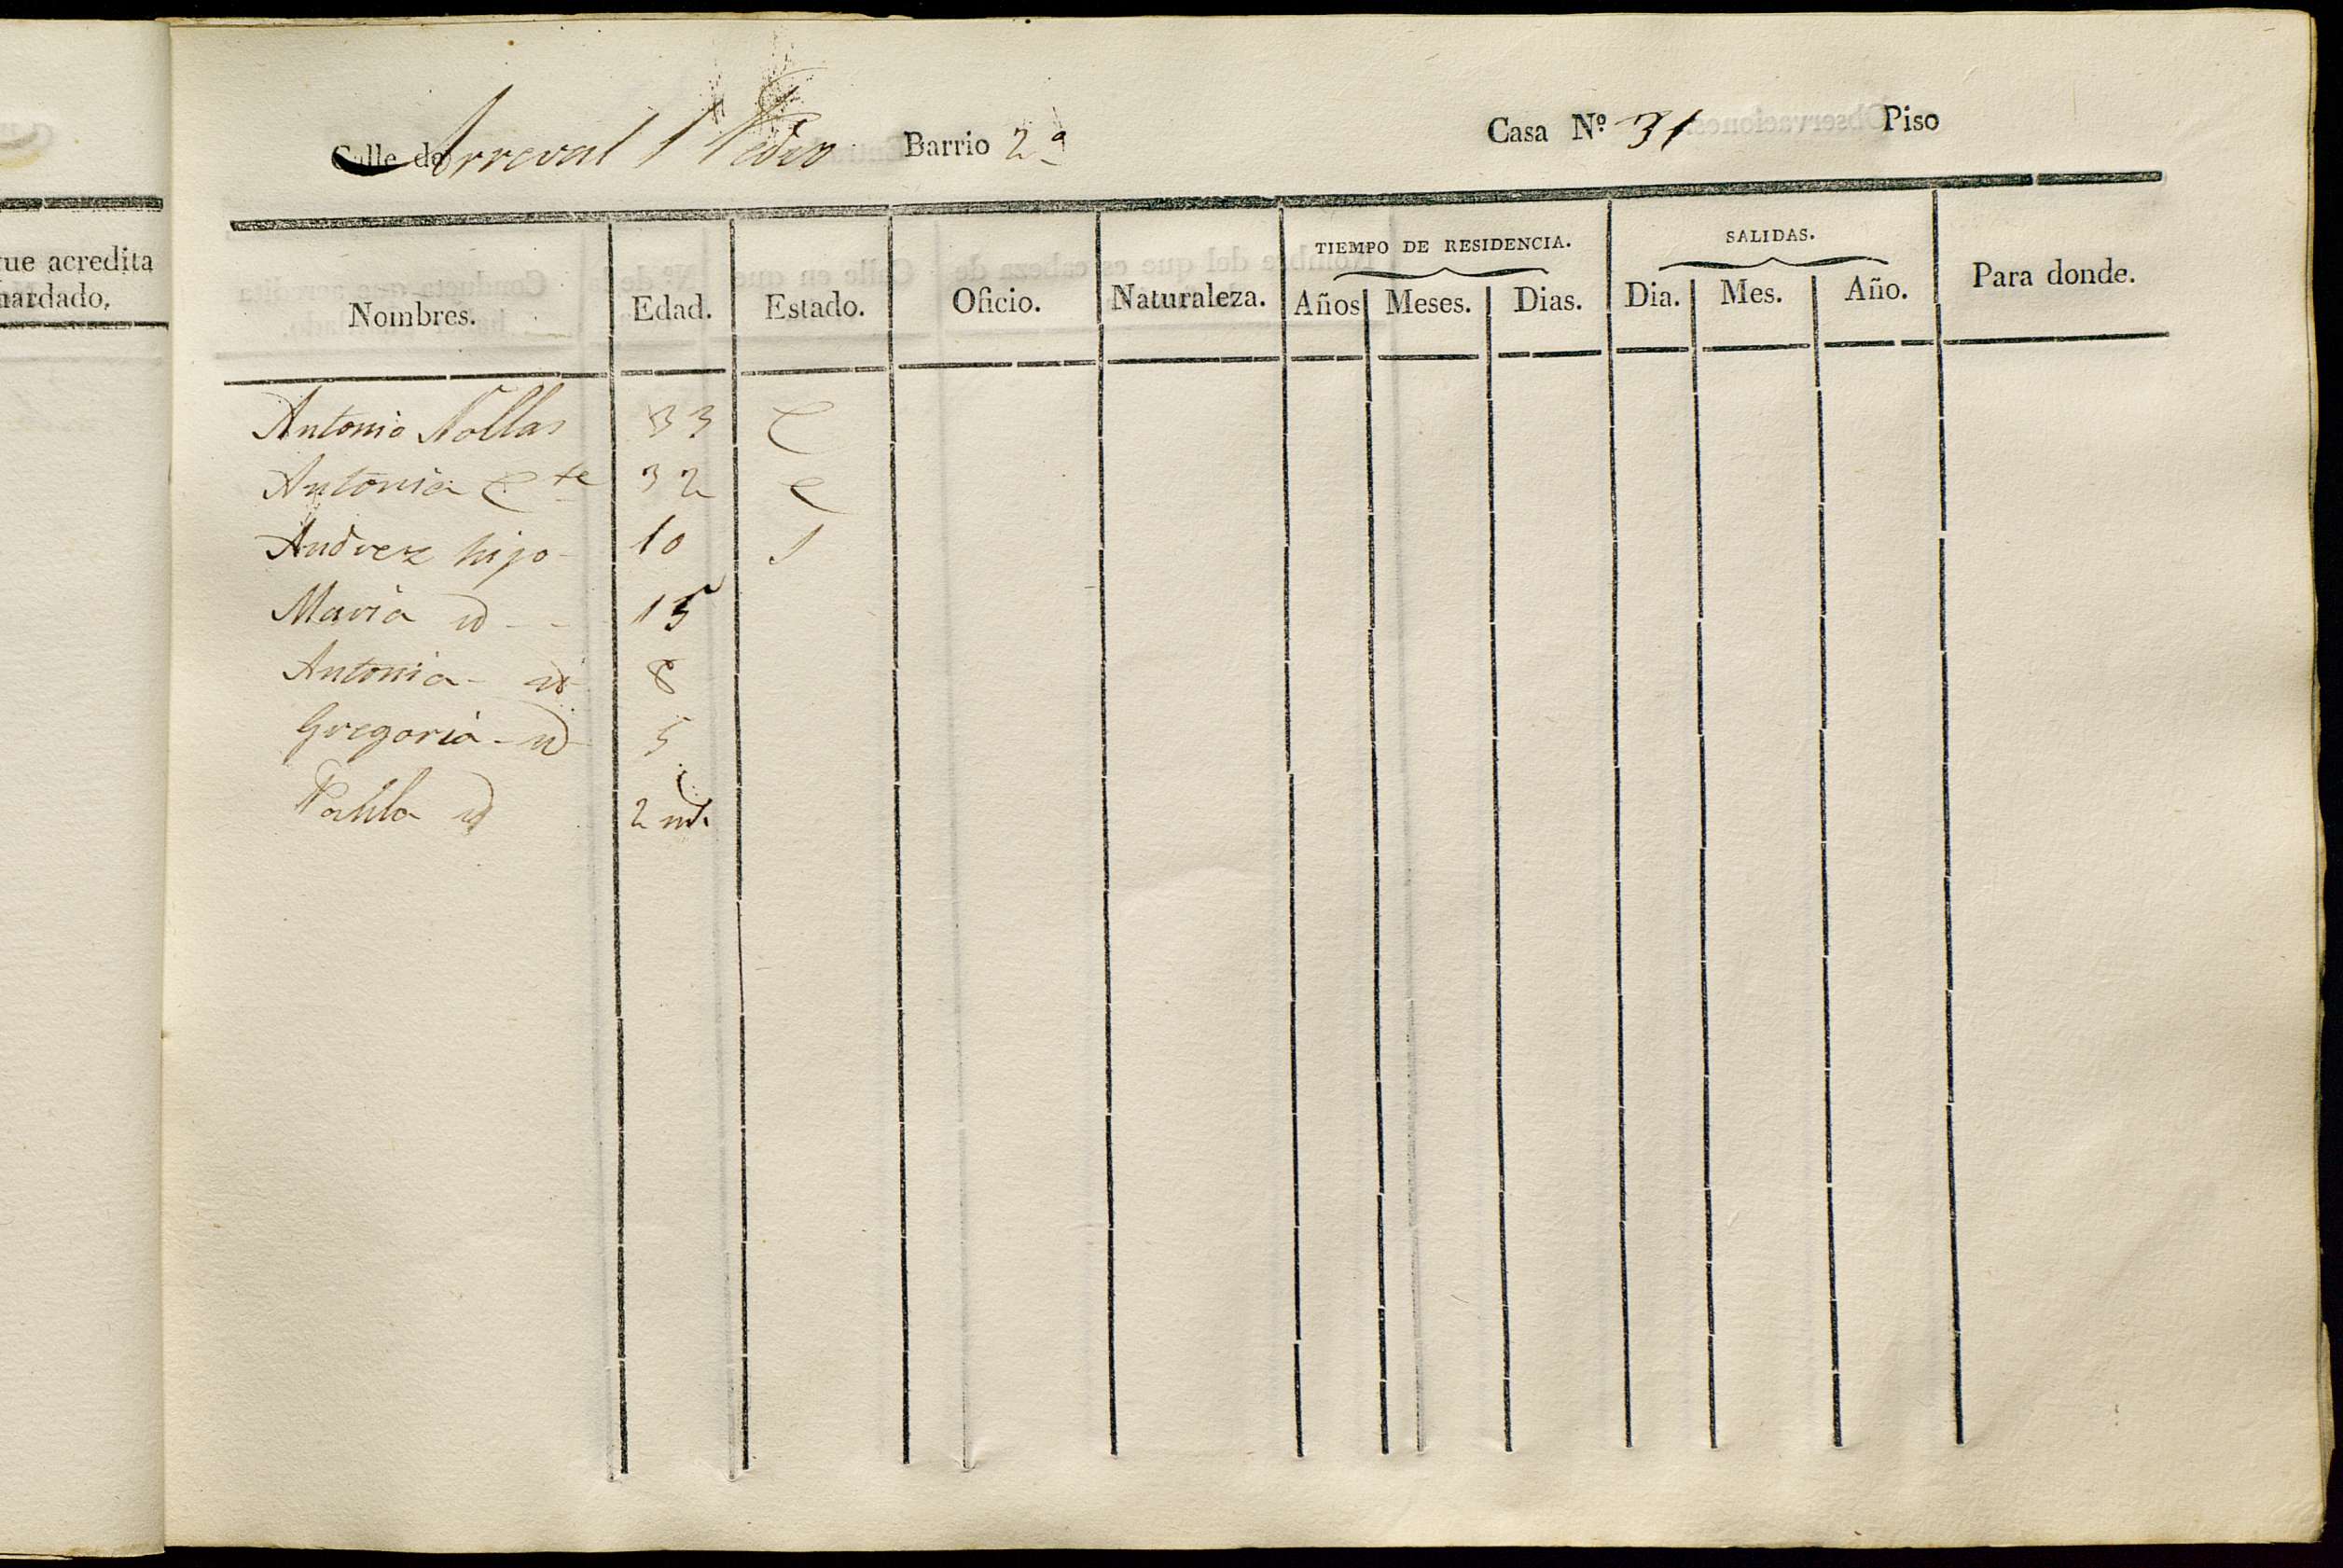 Calle de Arreval S Pedro Barrio 2ª Casa Nº 31 Piso
que acredita
hardado,
Nombres. Edad. Estado. Oficio. Naturaleza. TIEMPO DE RESIDENCIA. Años Meses. Dias. SALIDAS. Dia. Mes. Año. Para donde.
Antonio Nollas 33 C
Antonia Cte 32 C
Andrez hijo 10 S
Maria id 15
Antonia id 8
Gregoria id 5
Pabla id 2 ms.